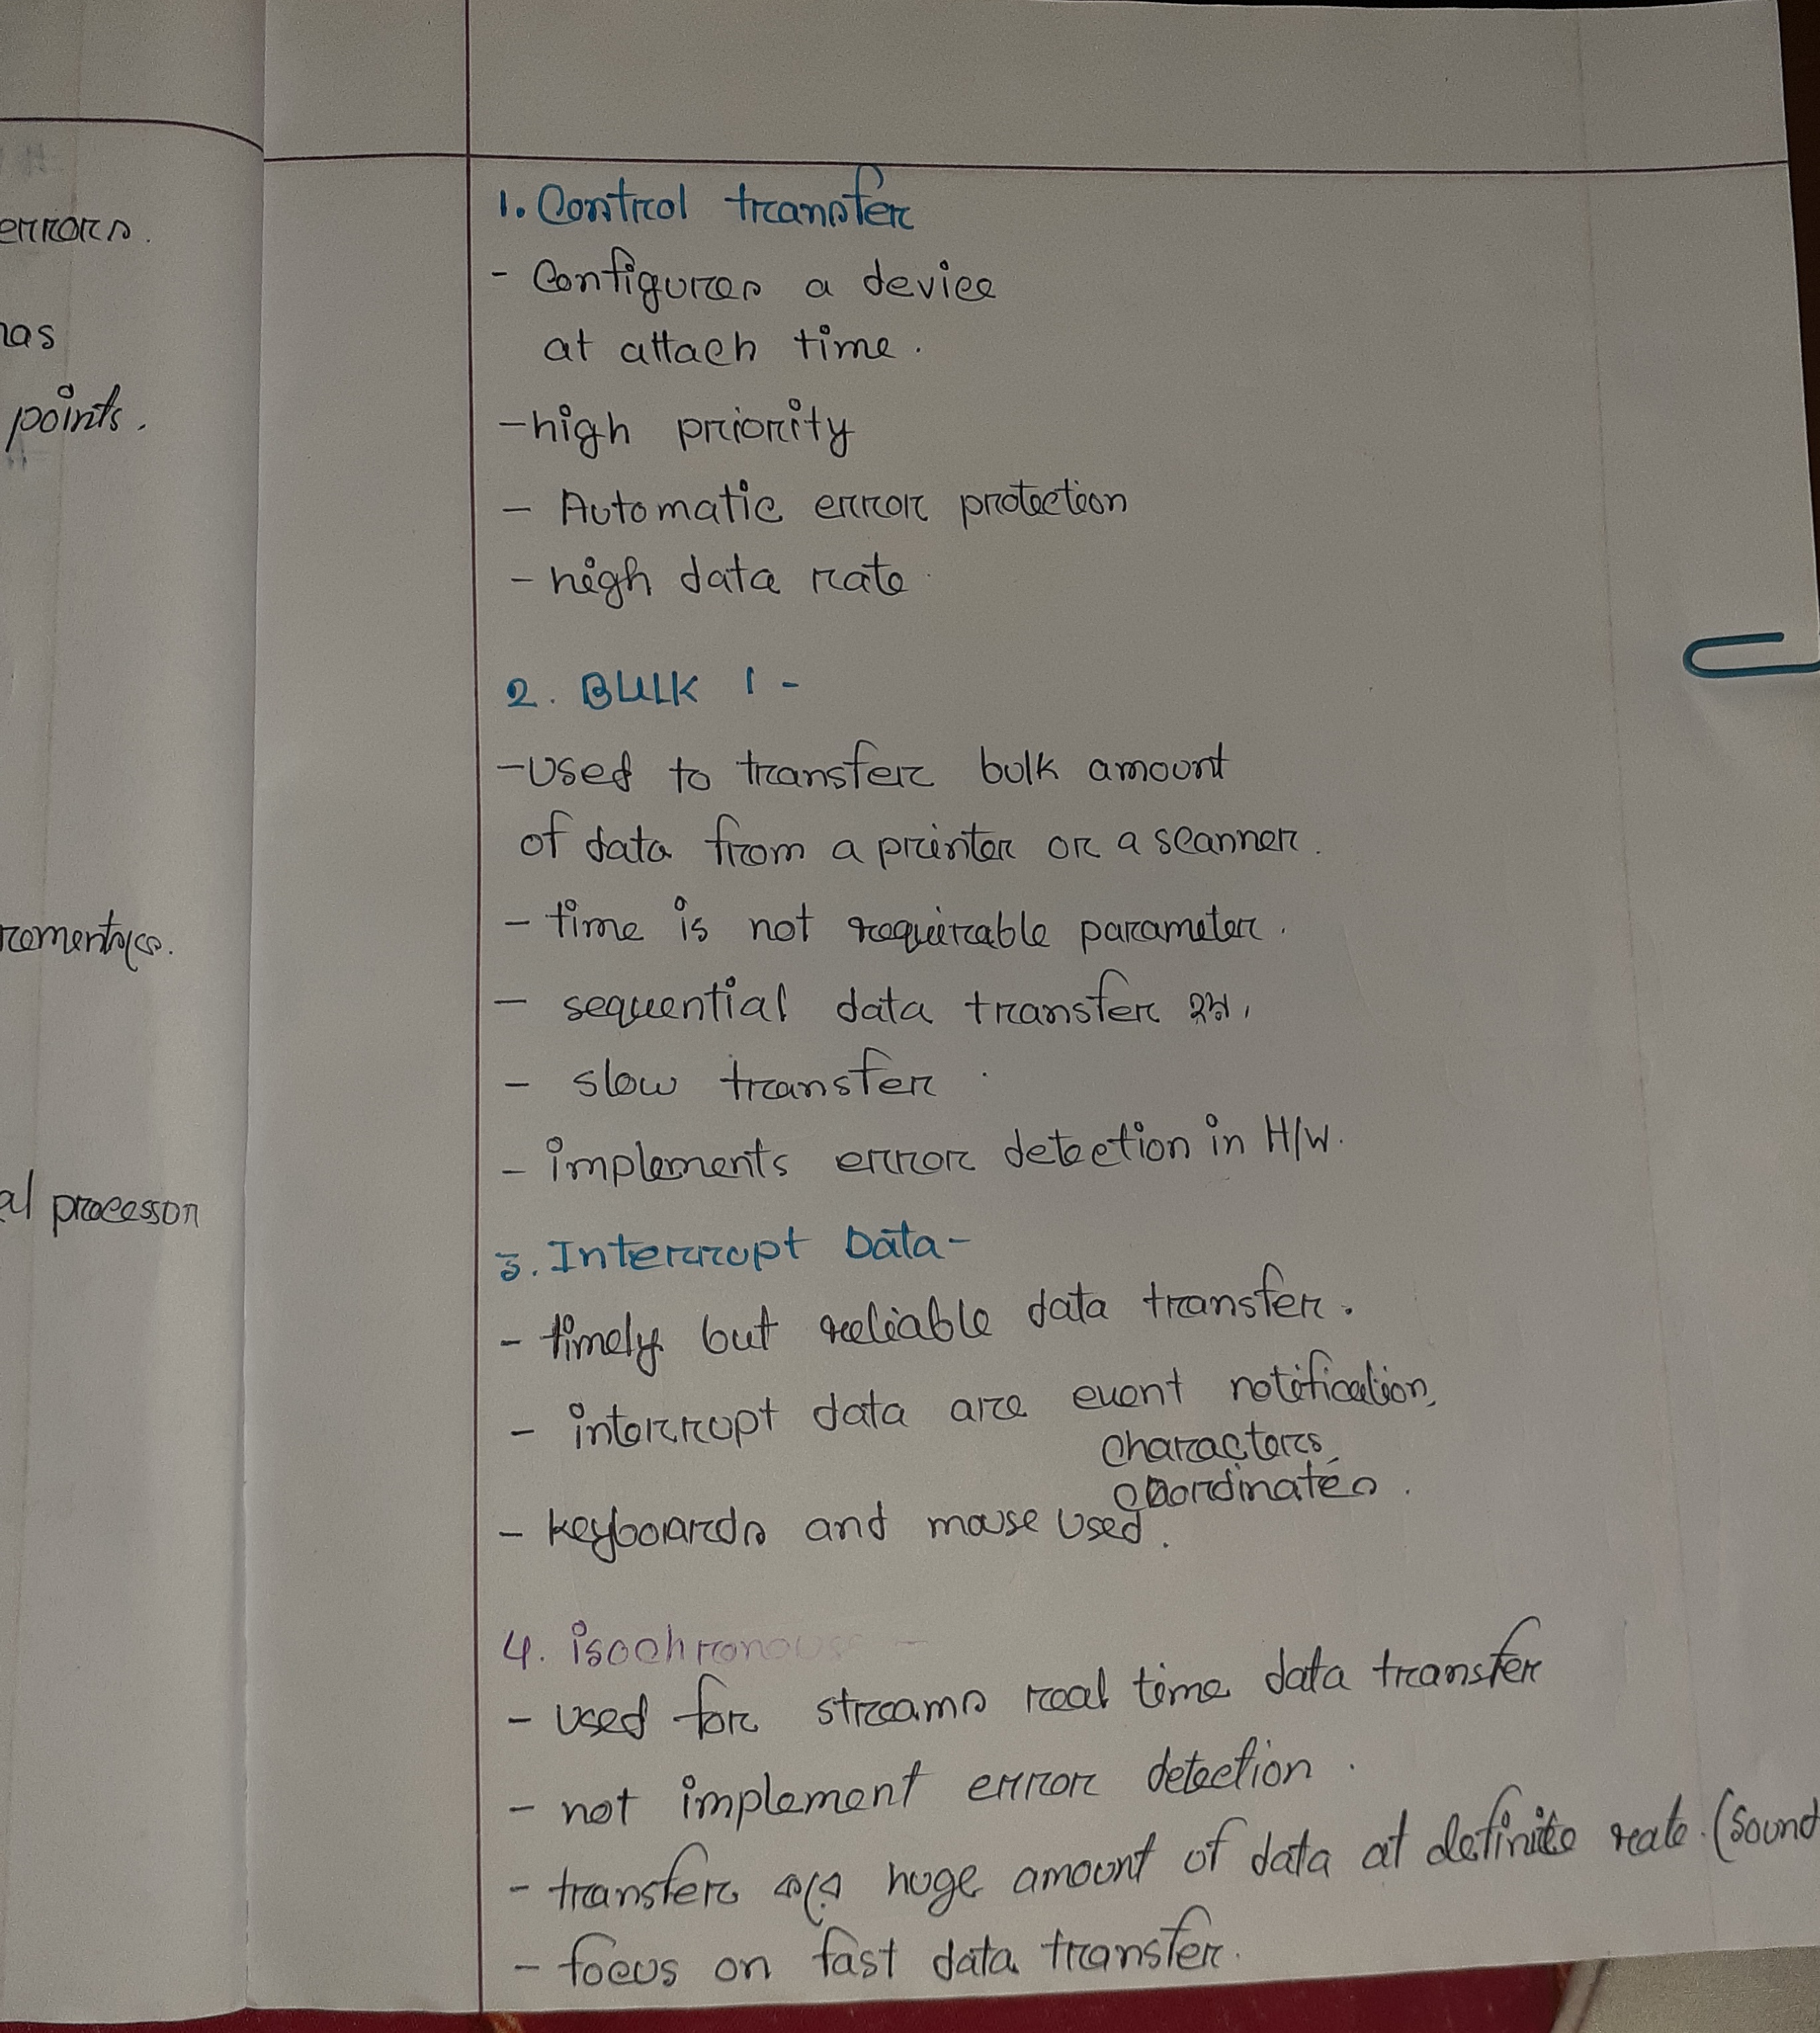 errors.
has
points.
al processor
1. Control transfer
- Configures a device
at attach time.
- high priority
- Automatic error protection
- high data rate
2. BULK 1 -
- Used to transfer bulk amount
of data from a printer or a scanner.
- time is not requirable parameter.
- sequential data transfer হয়,
- slow transfer
- implements error detection in H/W.
3. Interrupt Data -
- timely but reliable data transfer.
- interrupt data are event notification,
characters,
coordinates.
- keyboards and mouse used.
4. isochronous -
- used for streams real time data transfer
- not implement error detection.
- transfer করে huge amount of data at definite rate. (Sound
- focus on fast data transfer.